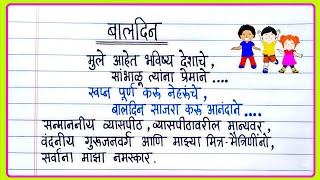 बालदिन
मुले आहेत भविष्य देशाचे,
सांभाळू त्यांना प्रेमाने ....
स्वप्न पूर्ण करू नेहरूंचे,
बालदिन साजरा करू आनंदाने ....
सन्माननीय व्यासपीठ, व्यासपीठावरील मान्यवर,
वंदनीय गुरुजनवर्ग आणि माझ्या मित्र-मैत्रिणींनो,
सर्वांना माझा नमस्कार.